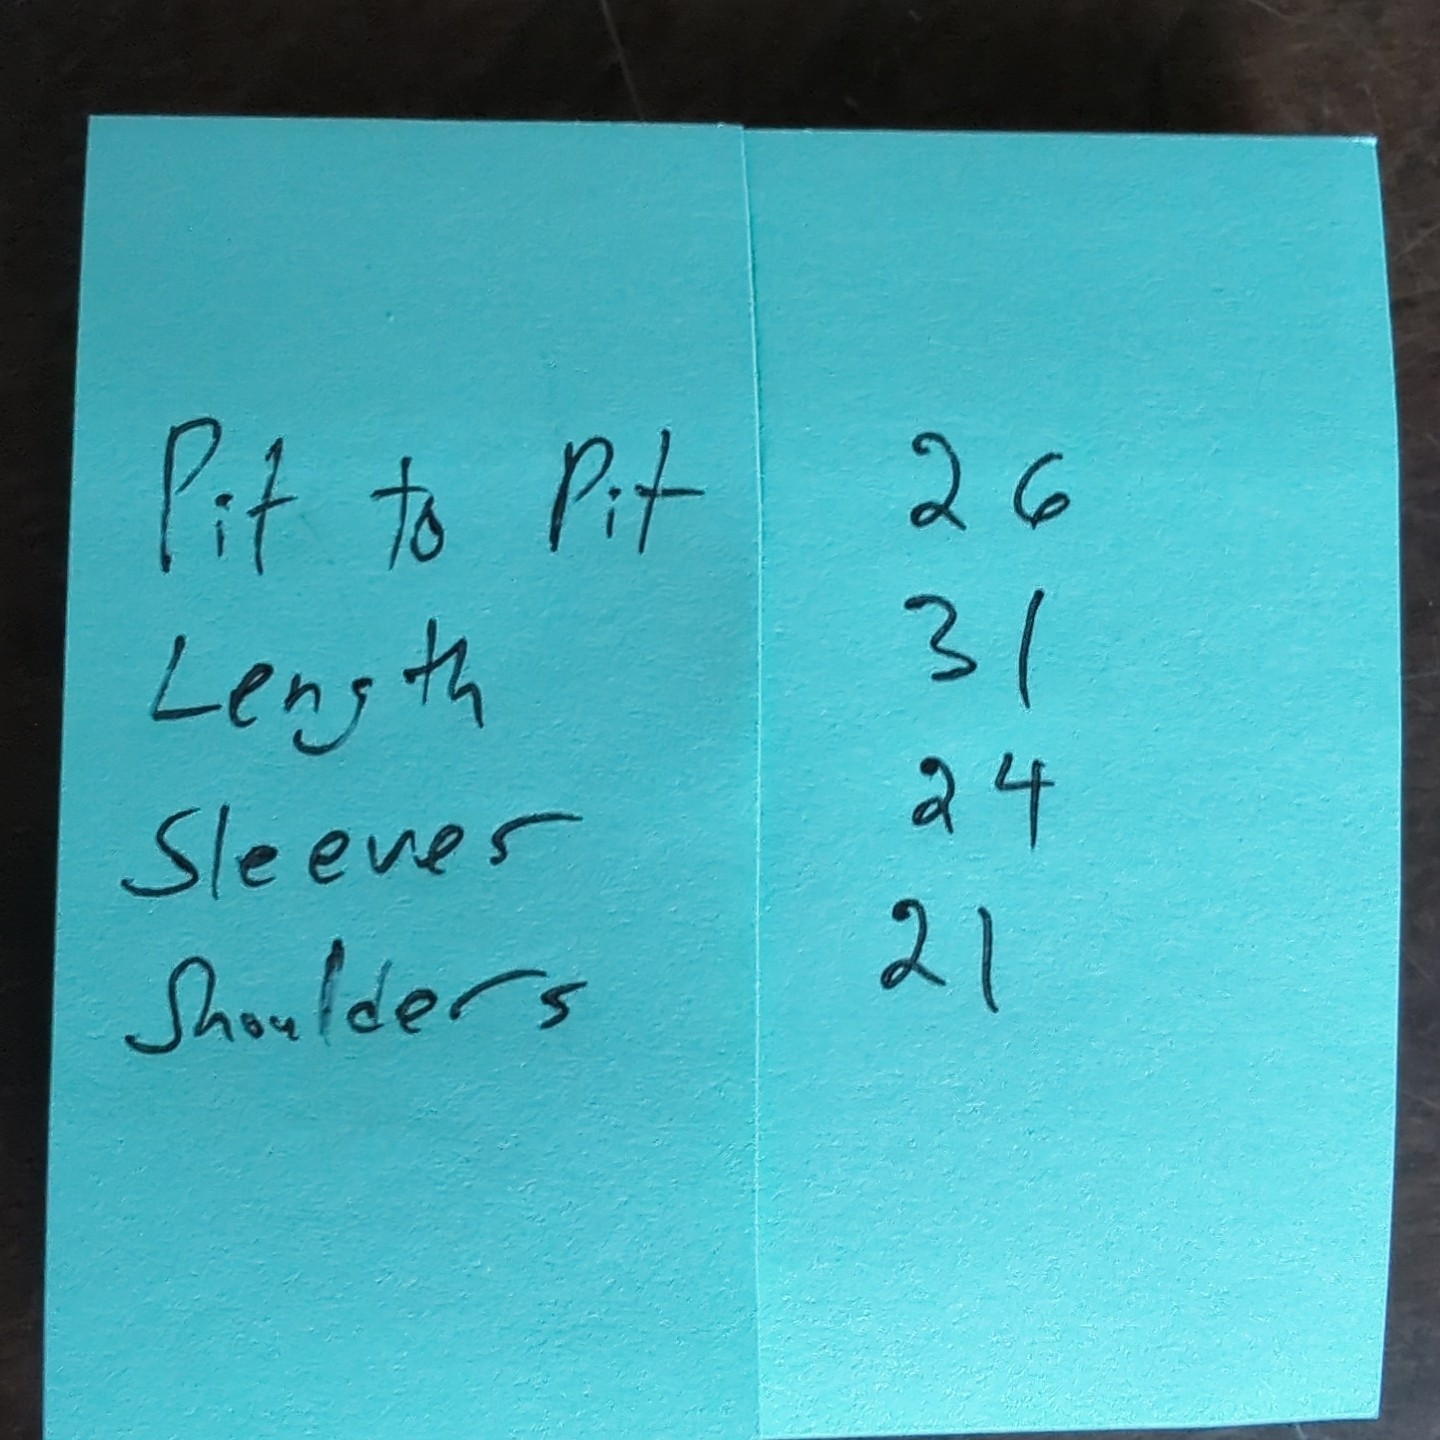 Pit to Pit 26
Length 31
Sleeves 24
Shoulders 21